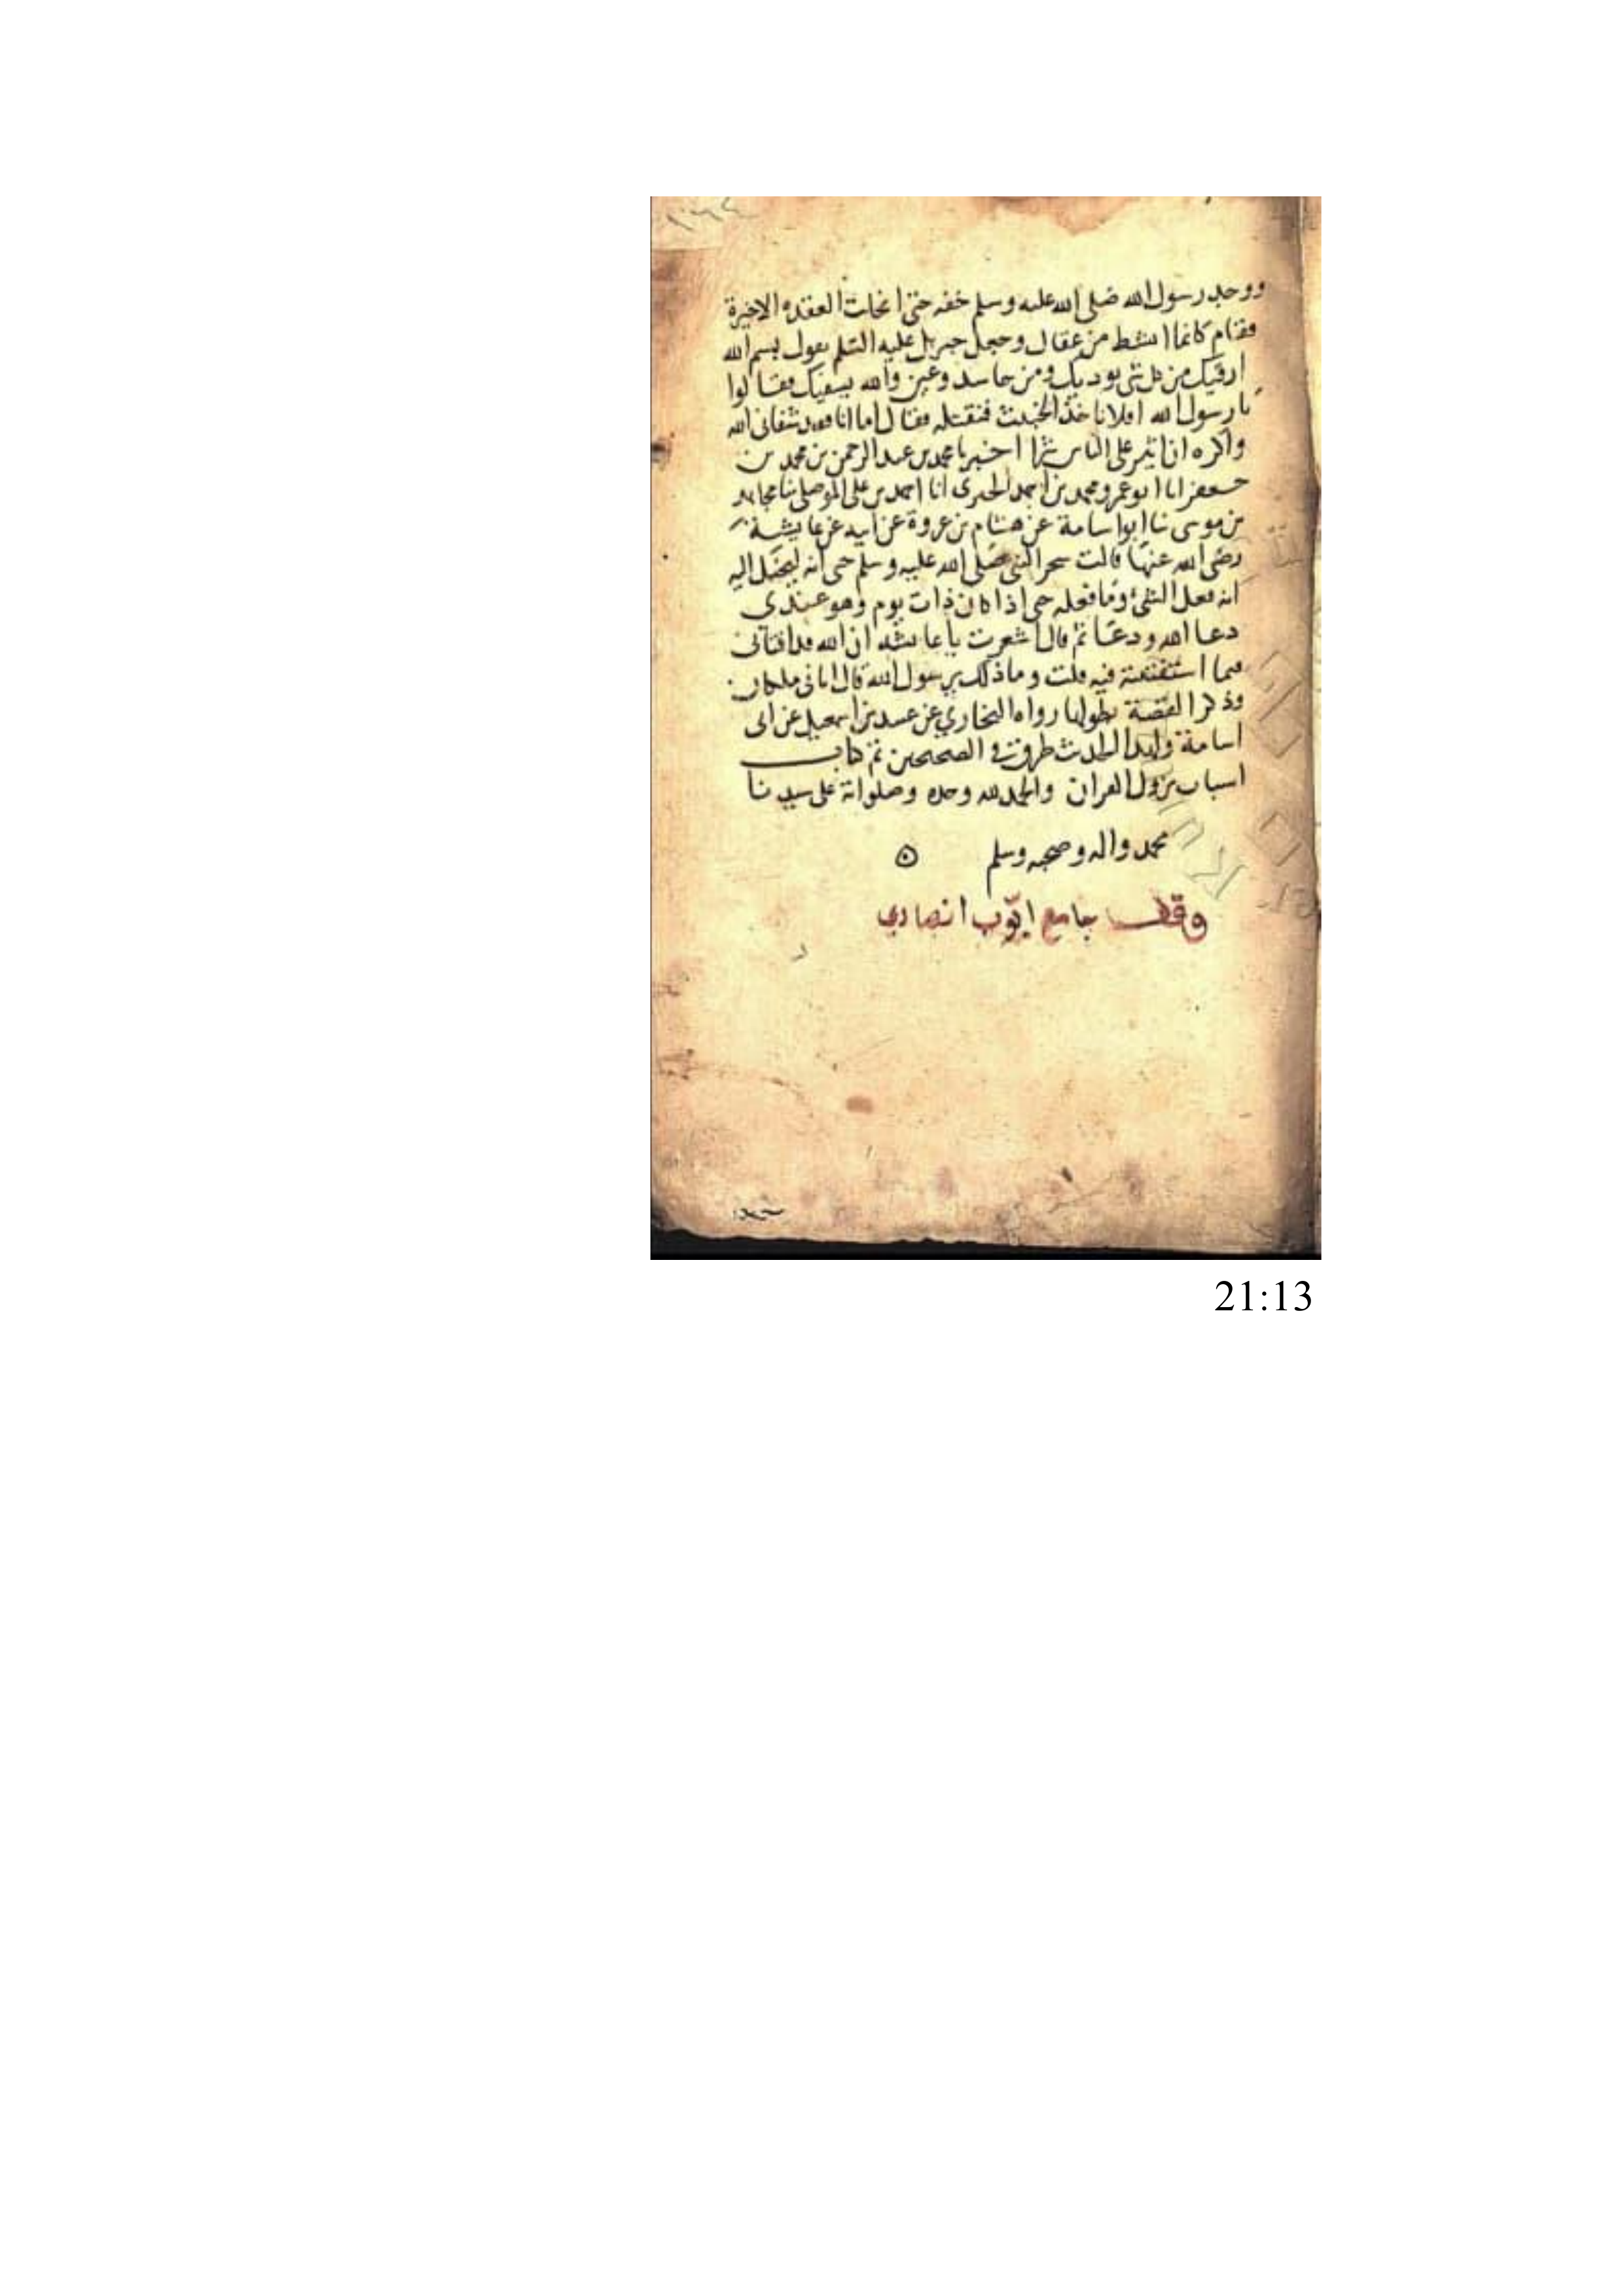 ووجد رسول الله صلى الله عليه وسلم خفه حتى انحلت العقده الاخيرة
فقام كانما انشط من عقال وجعل جبريل عليه السلم يقول بسم الله
ارقيك من كل شى يوديك ومن حاسد وعين والله يشفيك فقالوا
يا رسول الله افلا ناخذ الخبيث فنقتله فقال اما انا فقد شفانى الله
واكره ان اثير على الناس شرا اخبرنا محمد بن عبد الرحمن بن محمد بن
جعفر انا ابو عمرو محمد بن احمد الحيرى انا احمد بن على الموصلى نا مجاهد
بن موسى نا ابو اسامة عن هشام بن عروة عن ابيه عن عايشة
رضى الله عنها قالت سحر النبى صلى الله عليه وسلم حتى انه ليخيل اليه
انه فعل الشئ وما فعله حتى اذا كان ذات يوم وهو عندى
دعا الله ودعا ثم قال اشعرت يا عائشه ان الله قد افتانى
فيما استفتيته فيه قلت وما ذلك يرسول الله قال اتانى ملكان
وذكر القصة بطولها رواه البخاري عن عبيد بن اسمعيل عن ابى
اسامة ولهذا الحديث طرق فى الصحيحين تم كتاب
اسباب نزول القران والحمد لله وحده وصلواته على سيدنا
محمد واله وصحبه وسلم
وقف جامع ايّوب انصاري
21:13